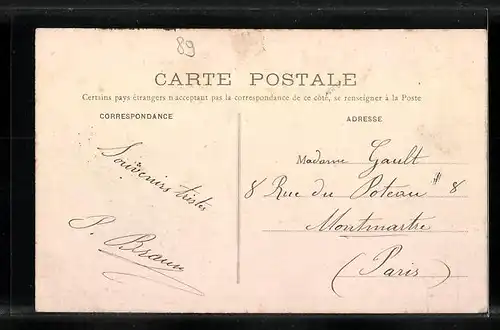 89
CARTE POSTALE
Certains pays étrangers n'acceptant pas la correspondance de ce côté, se renseigner à la Poste
CORRESPONDANCE
Souvenirs tristes
P. Braun
ADRESSE
Madame Gault
8 Rue du Poteau # 8
Montmartre
(Paris)